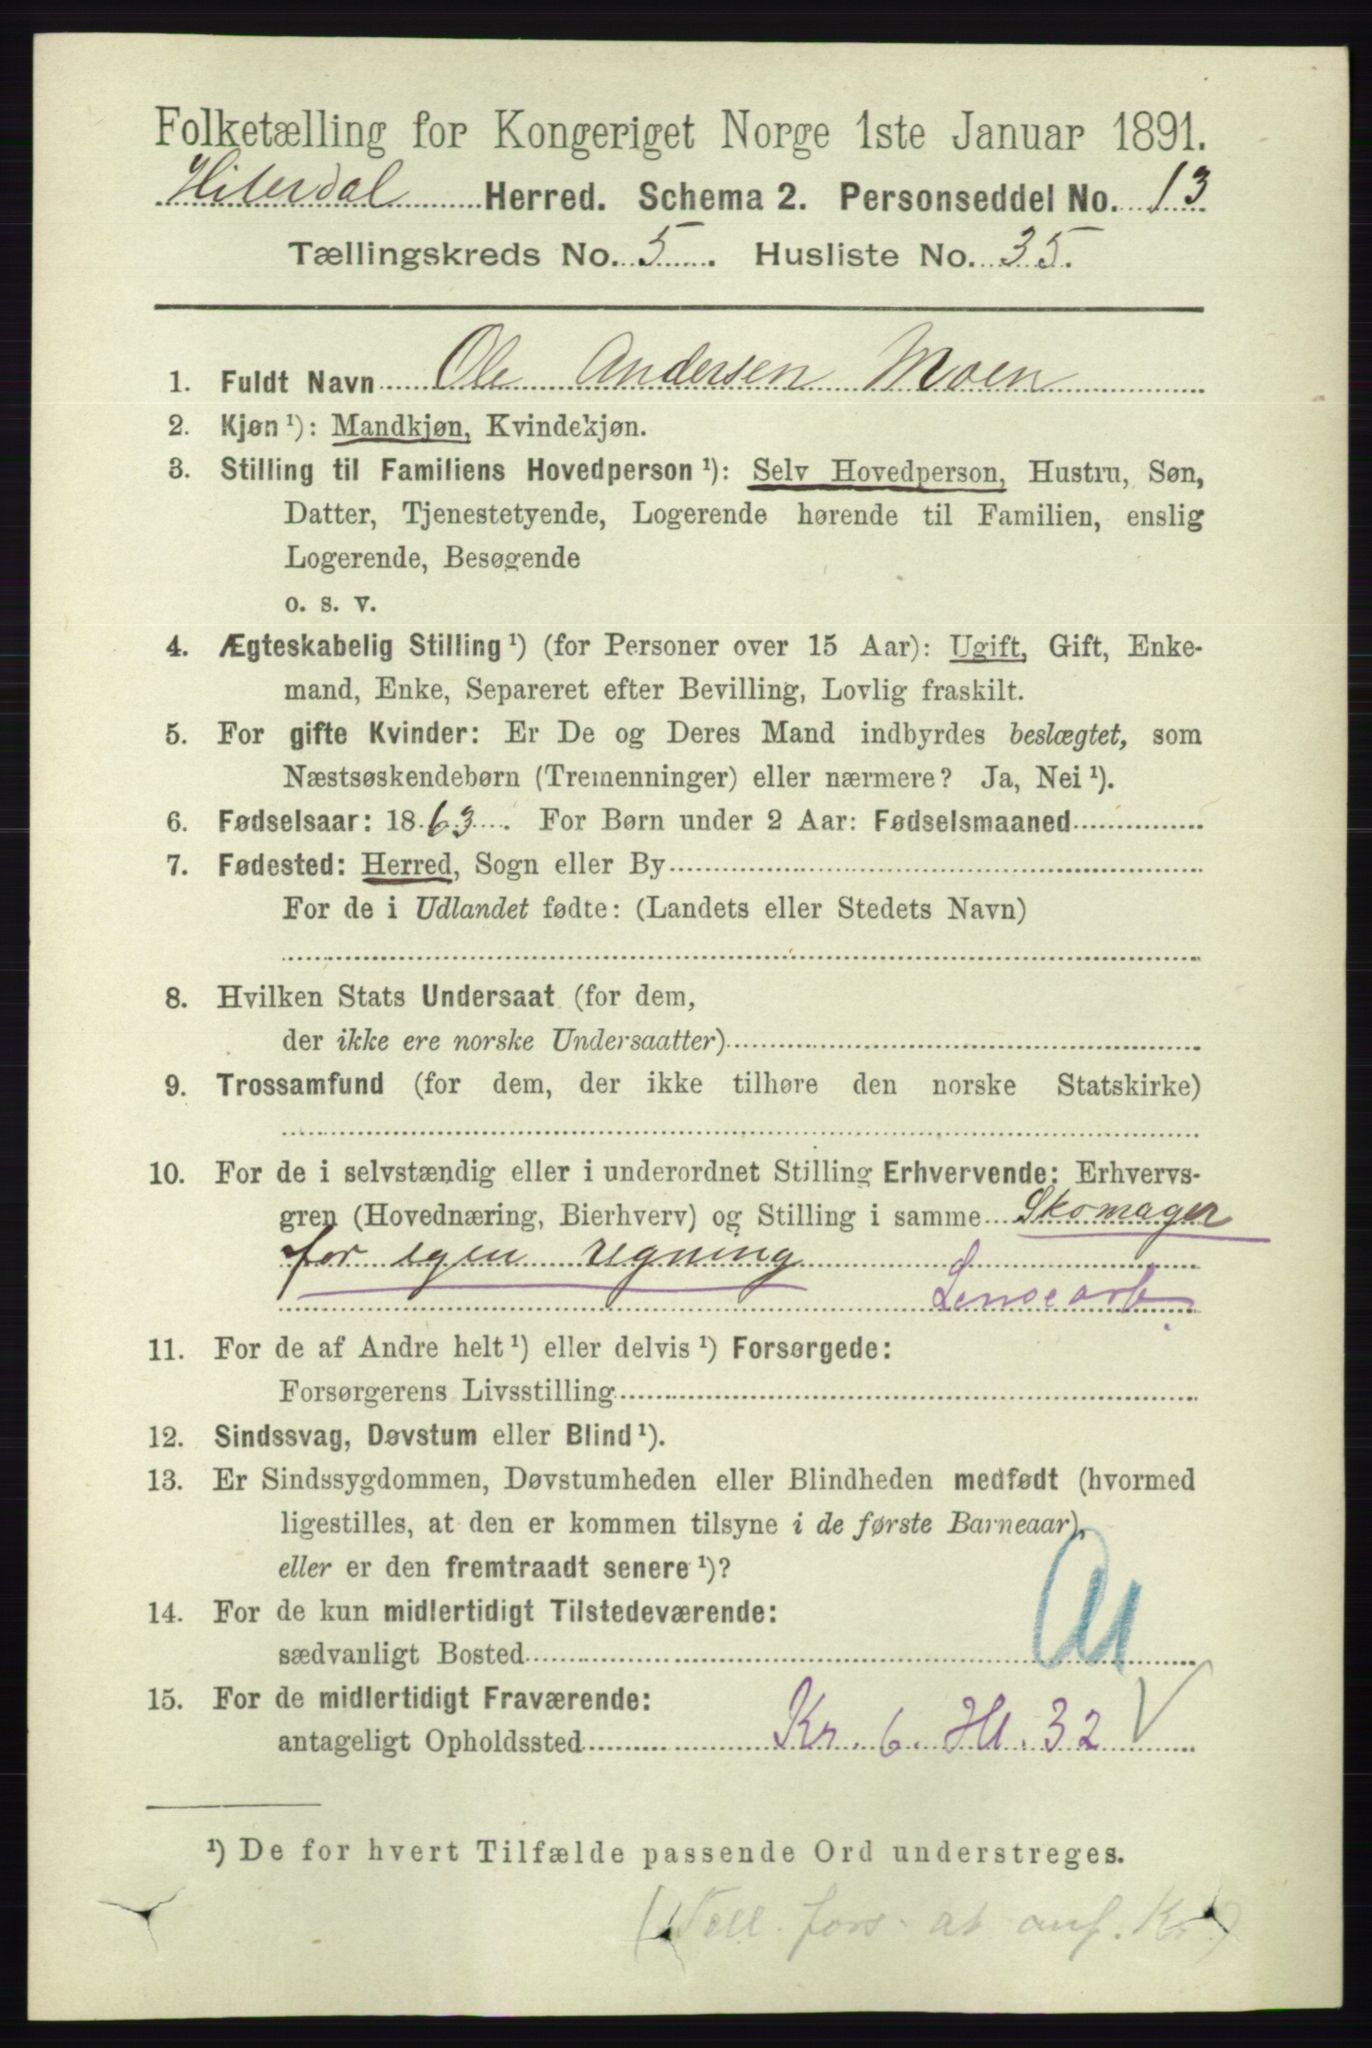 Folketælling for Kongeriget Norge 1ste Januar 1891.
Hiterdal Herred. Schema 2. Personseddel No. 13
Tællingskreds No. 5. Husliste No. 35.
1. Fuldt Navn Ole Andersen Moen
2. Kjøn ¹): Mandkjøn, Kvindekjøn.
3. Stilling til Familiens Hovedperson ¹): Selv Hovedperson, Hustru, Søn,
Datter, Tjenestetyende, Logerende hørende til Familien, enslig
Logerende, Besøgende
o. s. v.
4. Ægteskabelig Stilling ¹) (for Personer over 15 Aar): Ugift, Gift, Enke-
mand, Enke, Separeret efter Bevilling, Lovlig fraskilt.
5. For gifte Kvinder: Er De og Deres Mand indbyrdes beslægtet, som
Næstsøskendebørn (Tremenninger) eller nærmere? Ja, Nei ¹).
6. Fødselsaar: 1863. For Børn under 2 Aar: Fødselsmaaned
7. Fødested: Herred, Sogn eller By
For de i Udlandet fødte: (Landets eller Stedets Navn)
8. Hvilken Stats Undersaat (for dem,
der ikke ere norske Undersaatter)
9. Trossamfund (for dem, der ikke tilhøre den norske Statskirke)
10. For de i selvstændig eller i underordnet Stilling Erhvervende: Erhvervs-
gren (Hovednæring, Bierhverv) og Stilling i samme Skomager
for egen regning
11. For de af Andre helt ¹) eller delvis ¹) Forsørgede:
Forsørgerens Livsstilling
12. Sindssvag, Døvstum eller Blind ¹).
13. Er Sindssygdommen, Døvstumheden eller Blindheden medfødt (hvormed
ligestilles, at den er kommen tilsyne i de første Barneaar),
eller er den fremtraadt senere ¹)?
14. For de kun midlertidigt Tilstedeværende:
sædvanligt Bosted
15. For de midlertidigt Fraværende:
antageligt Opholdssted Kr. 6. Hl. 32
¹) De for hvert Tilfælde passende Ord understreges.